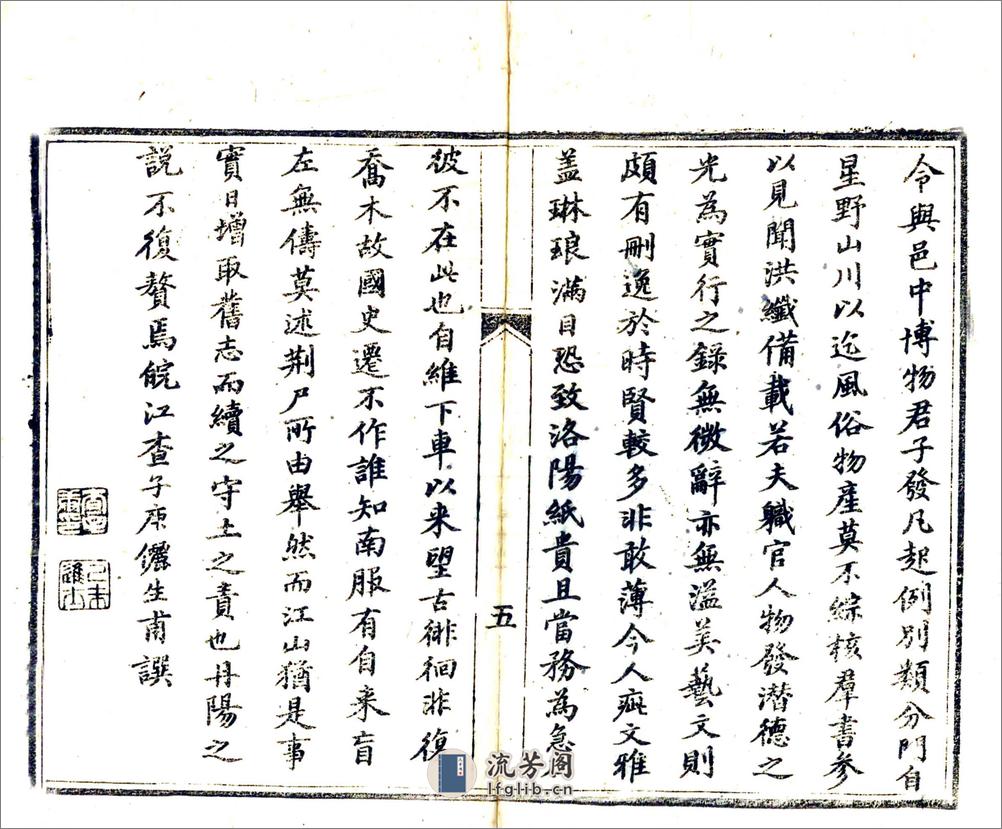 令與邑中博物君子發凡起例別類分門自
星野山川以迄風俗物產莫不綜核羣書參
以見聞洪纖備載若夫職官人物發潛德之
光為實行之錄無微辭亦無溢美藝文則
頗有刪逸於時賢較多非敢薄今人疵文雅
盖琳琅滿目恐致洛陽紙貴且當務為急
五
彼不在此也自維下車以来望古徘徊非復
喬木故國史遷不作誰知南服有自来盲
左無儔莫述荆尸所由舉然而江山猶是事
實日增取舊志而續之守土之責也丹陽之
說不復贅焉皖江查子庚儷生甫譔
己未
進士
流芳阁
lfglib.cn